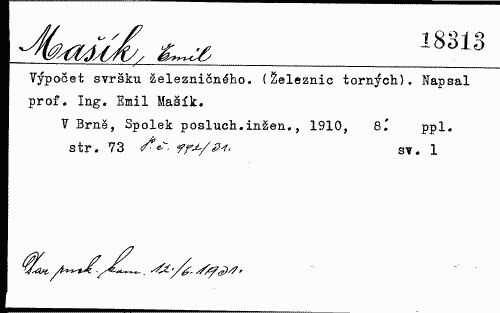 Mašík, Emil
18313
Výpočet svršku železničného. (Železnic torných). Napsal
prof. Ing. Emil Mašík.
V Brně, Spolek posluch.inžen., 1910, 8.° ppl.
str. 73 P.č. 992/31. sv. 1
Dar kom. 12./6.1931.